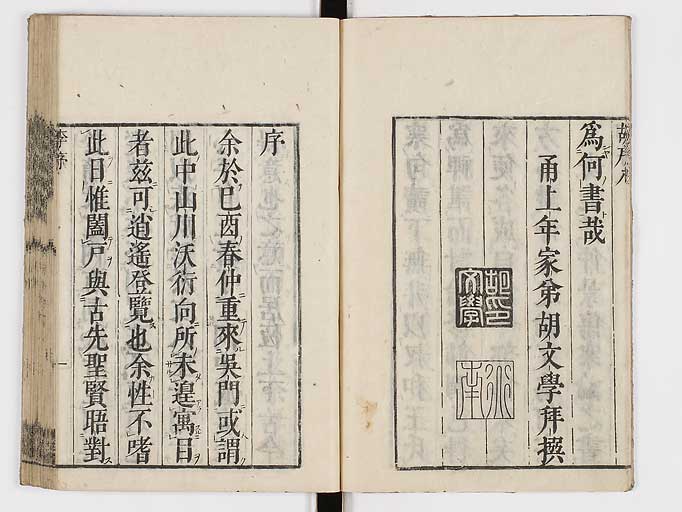 爲何書哉
甬上年家弟胡文學拜撰
胡印文學
序
余於己酉春仲重來吳門或謂
此中山川沃衍向所未遑寓目
者茲可逍遙登覽也余性不嗜
此日惟闔戸與古先聖賢晤對
李序
一